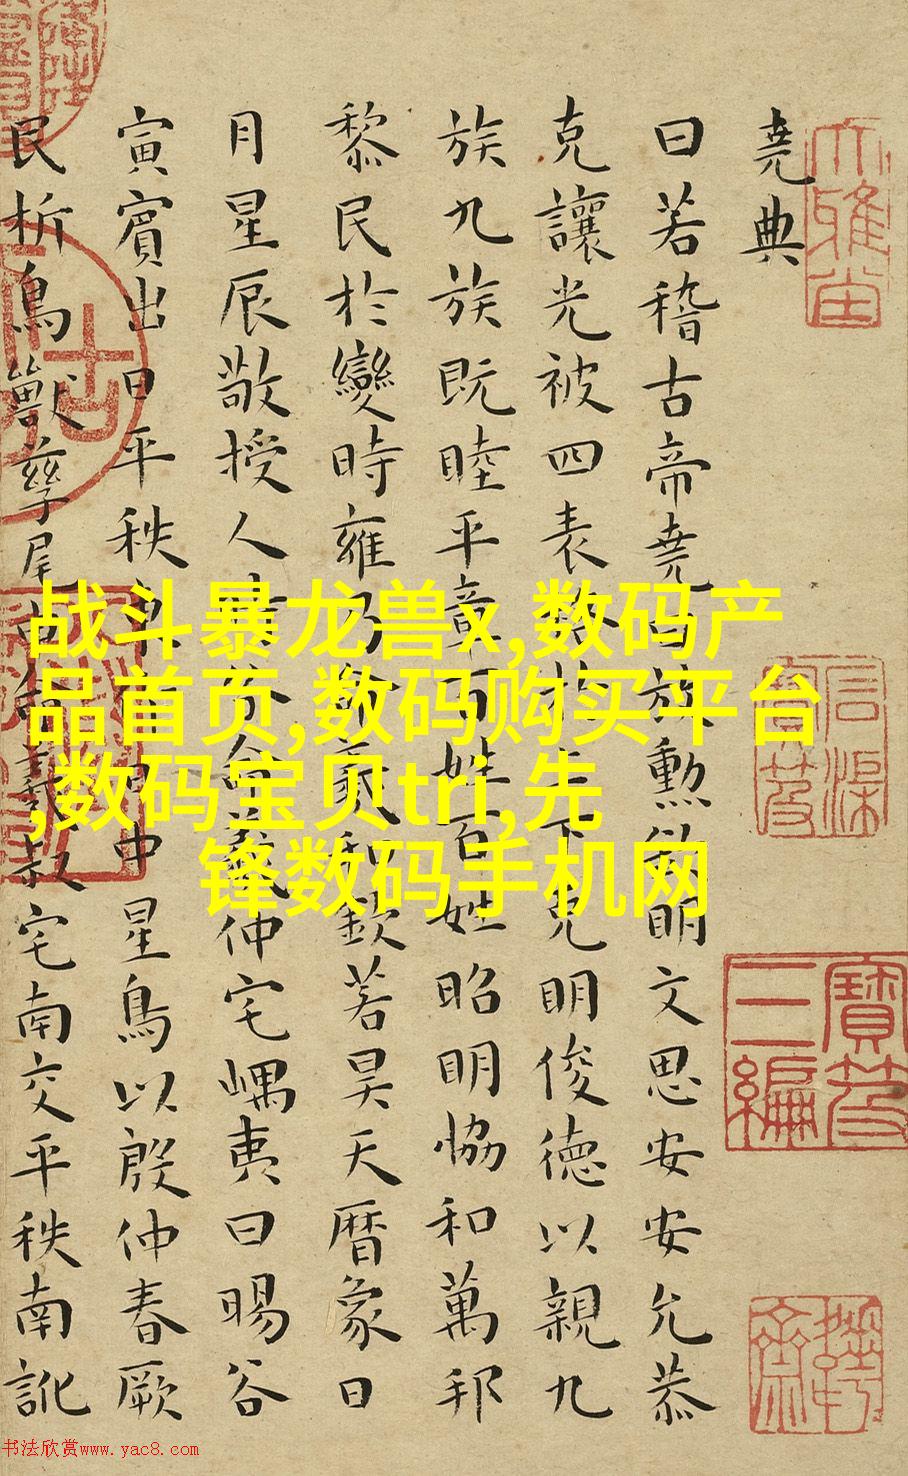 堯典
曰若稽古帝堯曰放勳欽明文思安安允恭
克讓光被四表格於上下克明俊德以親九
族九族既睦平章百姓百姓昭明恊和萬邦
黎民於變時雍乃命羲和欽若昊天曆象日
月星辰敬授人時分命羲仲宅嵎夷曰暘谷
寅賓出日平秩東作日中星鳥以殷仲春厥
民析鳥獸孳尾申命羲叔宅南交平秩南訛
寶笈
三編
战斗暴龙兽x,数码产
品首页,数码购买平台
,数码宝贝tri,先
锋数码手机网
书法欣赏www.yac8.com